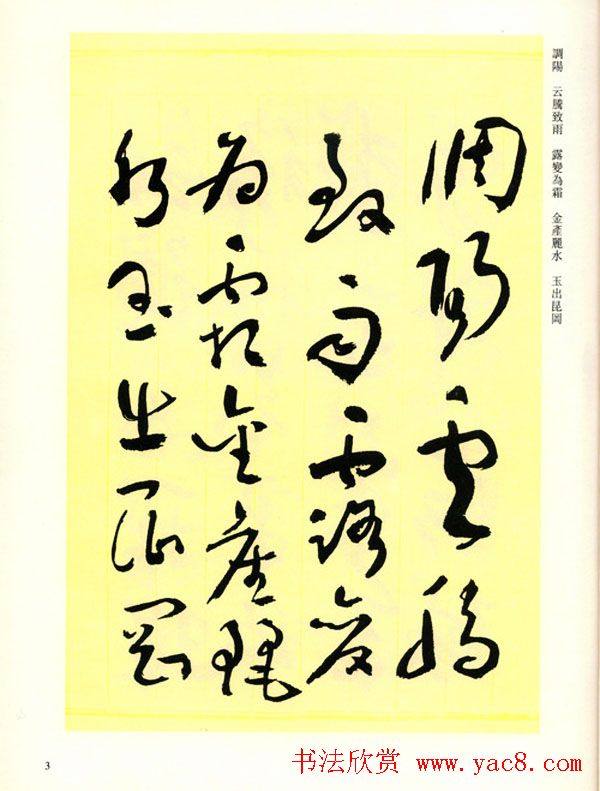 調陽　云騰致雨　露變為霜　金產麗水　玉出昆岡
調陽雲騰
致雨露變
為霜金產麗
水玉出崑岡
3
书法欣赏 www.yac8.com